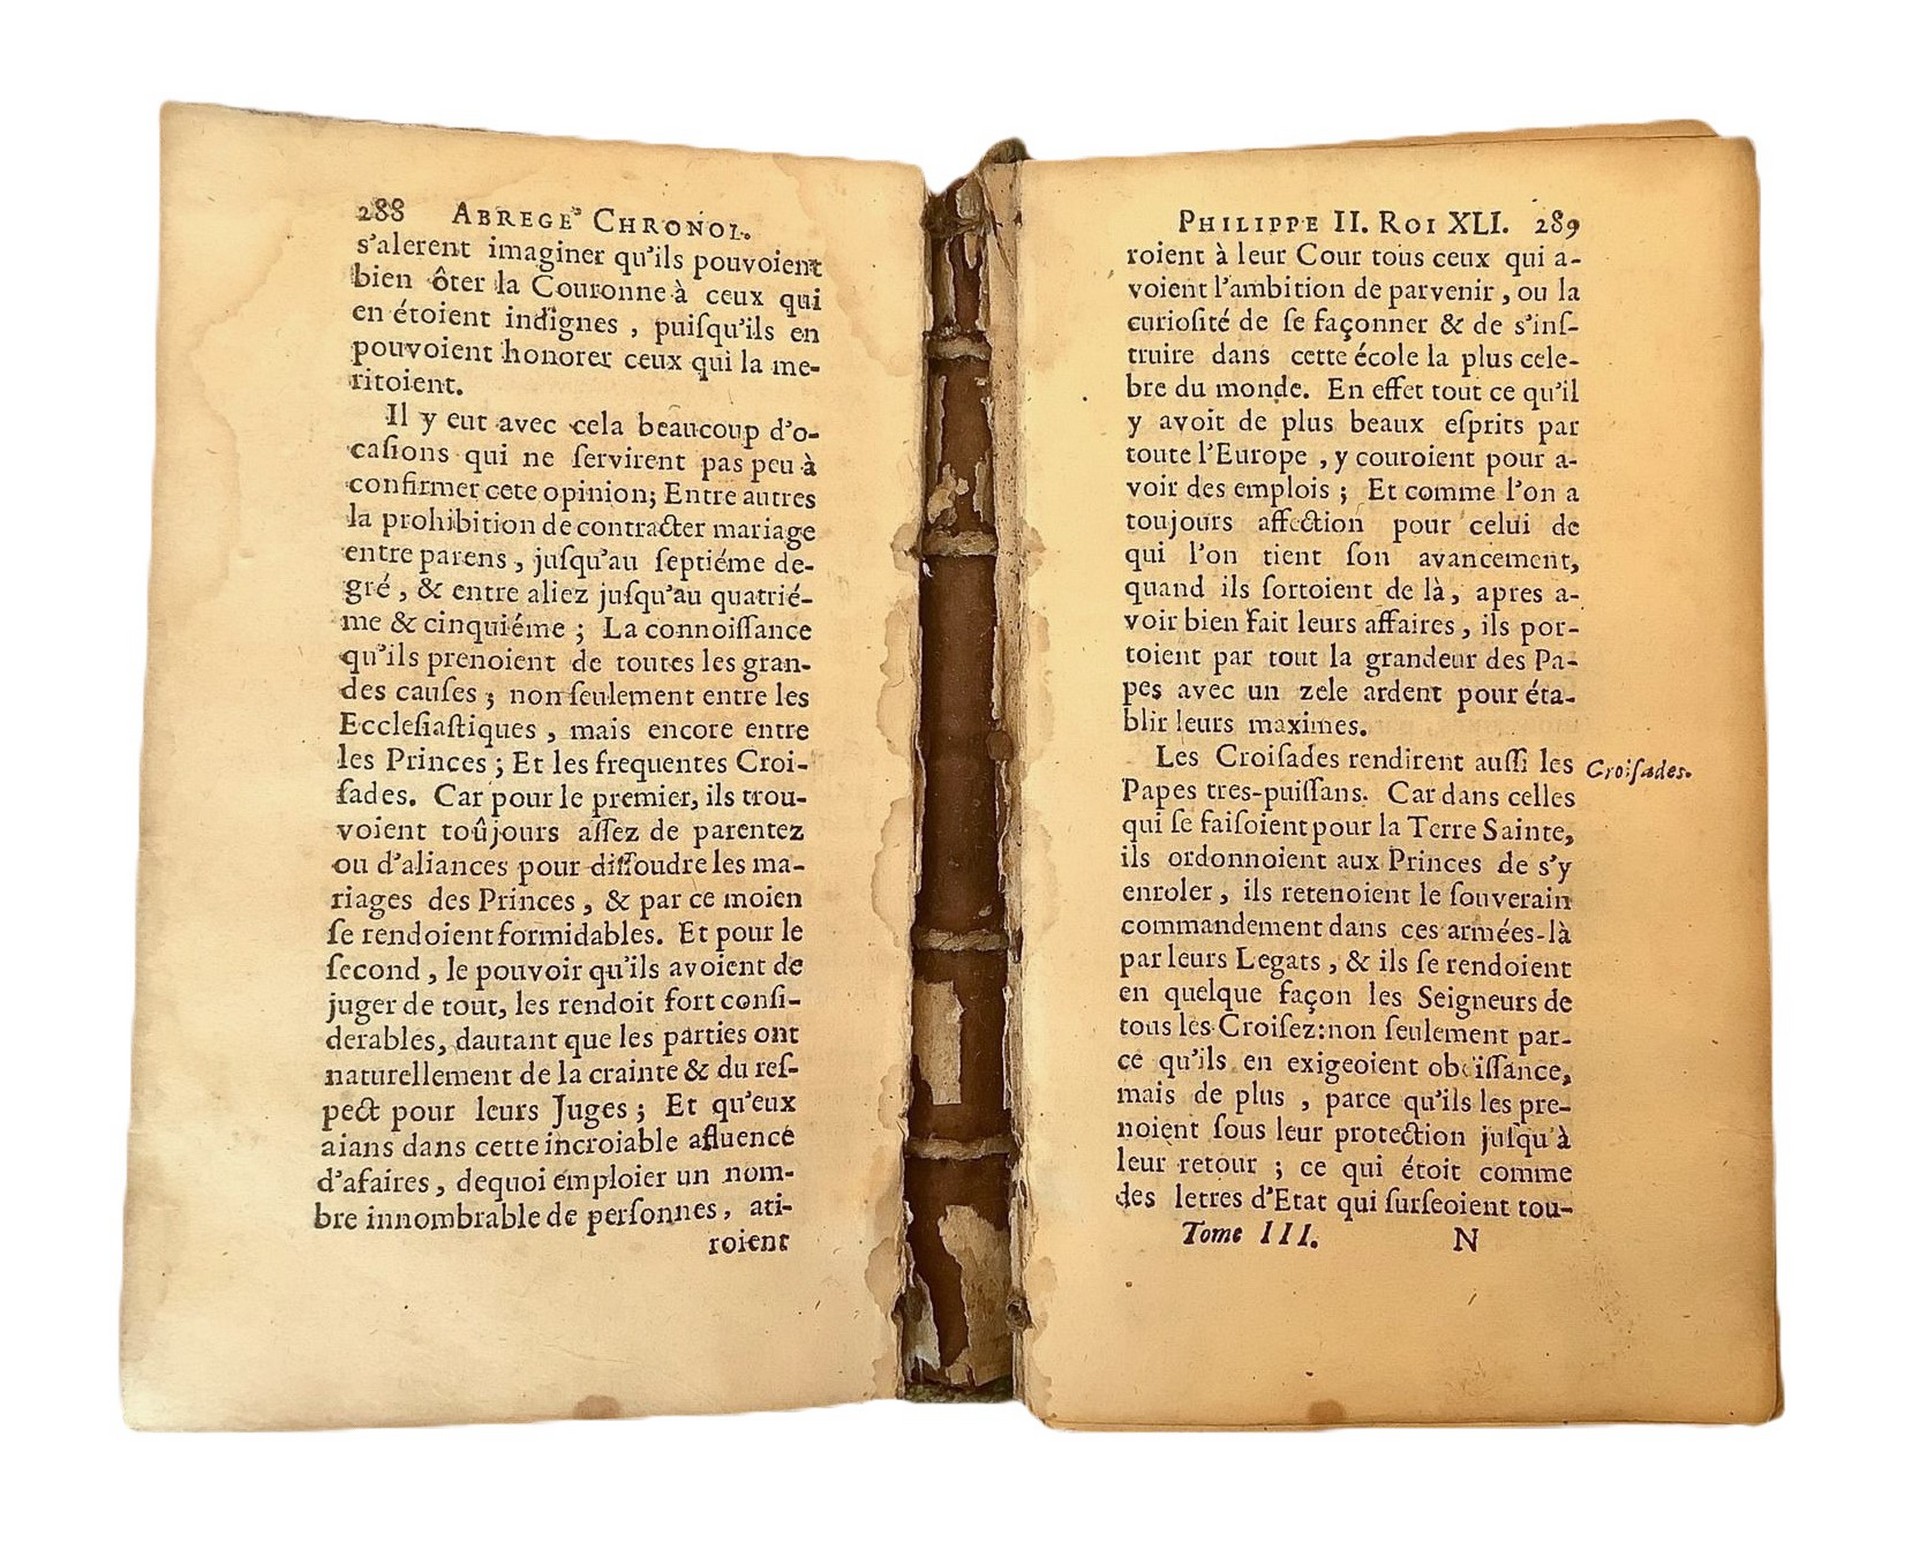 288 ABREGE' CHRONOL.
s'alerent imaginer qu'ils pouvoient
bien ôter la Couronne à ceux qui
en étoient indignes , puiſqu'ils en
pouvoient honorer ceux qui la me-
ritoient.
Il y eut avec cela beaucoup d'o-
caſions qui ne ſervirent pas peu à
confirmer cete opinion; Entre autres
la prohibition de contracter mariage
entre parens , juſqu'au ſeptiéme de-
gré , & entre aliez juſqu'au quatrié-
me & cinquiéme ; La connoiſſance
qu'ils prenoient de toutes les gran-
des cauſes ; non ſeulement entre les
Eccleſiaſtiques , mais encore entre
les Princes ; Et les frequentes Croi-
ſades. Car pour le premier, ils trou-
voient toûjours aſſez de parentez
ou d'aliances pour diſſoudre les ma-
riages des Princes , & par ce moien
ſe rendoient formidables. Et pour le
ſecond , le pouvoir qu'ils avoient de
juger de tout, les rendoit fort conſi-
derables, dautant que les parties ont
naturellement de la crainte & du reſ-
pect pour leurs Juges ; Et qu'eux
aians dans cette incroiable afluence
d'afaires , dequoi emploier un nom-
bre innombrable de perſonnes , ati-
roient
PHILIPPE II. ROI XLI. 289
roient à leur Cour tous ceux qui a-
voient l'ambition de parvenir , ou la
curioſité de ſe façonner & de s'inſ-
truire dans cette école la plus cele-
bre du monde. En effet tout ce qu'il
y avoit de plus beaux eſprits par
toute l'Europe , y couroient pour a-
voir des emplois ; Et comme l'on a
toujours affection pour celui de
qui l'on tient ſon avancement,
quand ils ſortoient de là , apres a-
voir bien fait leurs affaires , ils por-
toient par tout la grandeur des Pa-
pes avec un zele ardent pour éta-
blir leurs maximes.
Les Croiſades rendirent auſſi les
Croiſades.
Papes tres-puiſſans. Car dans celles
qui ſe faiſoient pour la Terre Sainte,
ils ordonnoient aux Princes de s'y
enroler , ils retenoient le ſouverain
commandement dans ces armées-là
par leurs Legats , & ils ſe rendoient
en quelque façon les Seigneurs de
tous les Croiſez: non ſeulement par-
ce qu'ils en exigeoient obéiſſance,
mais de plus , parce qu'ils les pre-
noient ſous leur protection juſqu'à
leur retour ; ce qui étoit comme
des letres d'Etat qui ſurſeoient tou-
Tome III. N